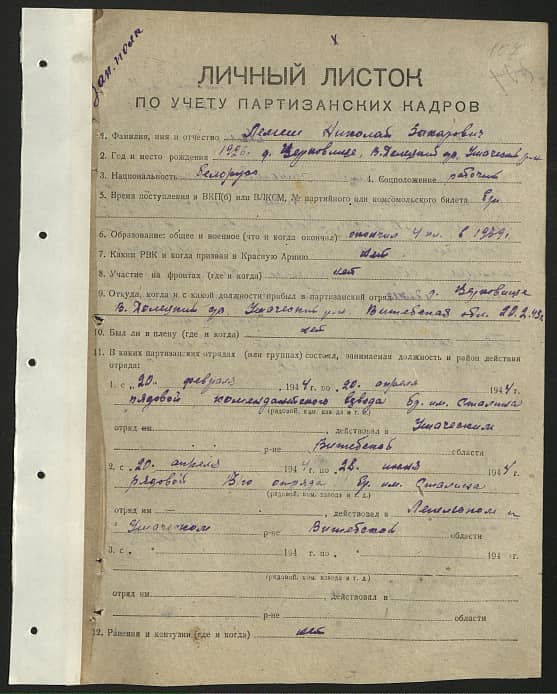 Зап. полк
ЛИЧНЫЙ ЛИСТОК
ПО УЧЕТУ ПАРТИЗАНСКИХ КАДРОВ
1. Фамилия, имя и отчество Лемеш Николай
2. Год и место рождения 1926 д. В. Ушачский р-н
3. Национальность белорус 4. Соцположение рабочий
5. Время поступления в ВКП(б) или ВЛКСМ, № партийного или комсомольского билета б/п
6. Образование: общее и военное (что и когда окончил) окончил 4 кл. в 1939 г.
7. Каким РВК и когда призван в Красную Армию нет
8. Участие на фронтах (где и когда) нет
9. Откуда, когда и с какой должности прибыл в партизанский отряд д.
В. Ушачский р-н Витебская обл.
10. Был ли в плену (где и когда) нет
11. В каких партизанских отрядах (или группах) состоял, занимаемая должность и район действия
отряда:
1. с „20 февраля 1944 г. по 20 апреля 1944 г.
рядовой комендантского взвода бр. им. Сталина
(рядовой, ком. взвода и т. д.)
отряд им. , действовал в Ушачском
р-не Витебской области
2. с 20 апреля 1944 г. по 28 июня 1944 г.
рядовой отряда бр. им. Сталина
(рядовой, ком. взвода и т. д.)
отряд им. , действовал в Лепельском и
Ушачском р-не Витебской области
3. с „ 194 г. по „ 194 г.
(рядовой, ком. взвода и т. д.)
отряд им. , действовал в
р-не области
12. Ранения и контузии (где и когда) нет